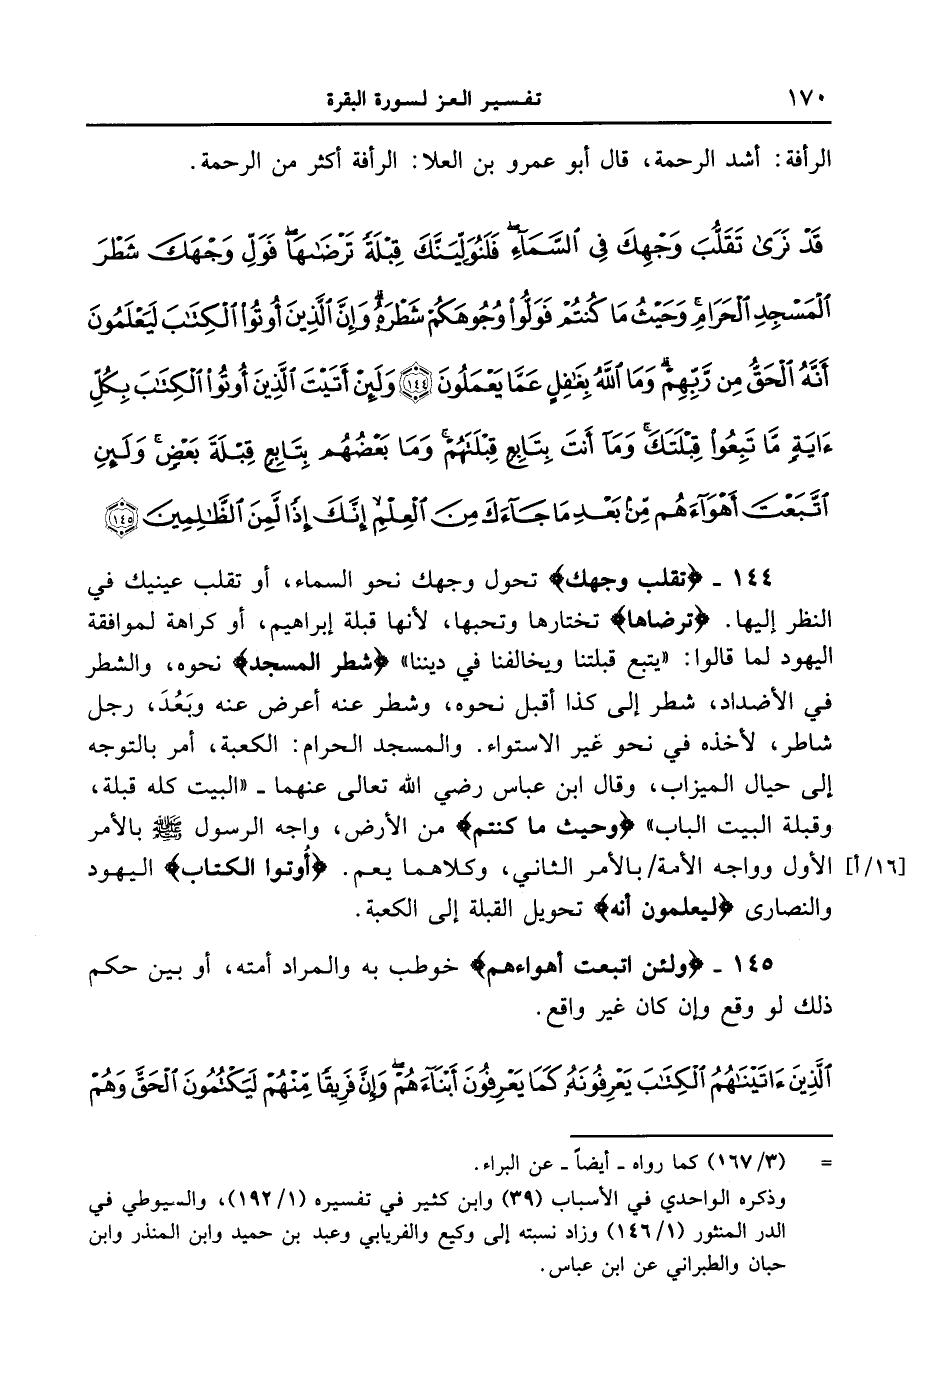 ١٧٠
تفسير العز لسورة البقرة
الرأفة: أشد الرحمة، قال أبو عمرو بن العلا: الرأفة أكثر من الرحمة.
قَدْ نَرَىٰ تَقَلُّبَ وَجْهِكَ فِي ٱلسَّمَآءِۖ فَلَنُوَلِّيَنَّكَ قِبْلَةً تَرْضَىٰهَاۚ فَوَلِّ وَجْهَكَ شَطْرَ
ٱلْمَسْجِدِ ٱلْحَرَامِۚ وَحَيْثُ مَا كُنتُمْ فَوَلُّوا۟ وُجُوهَكُمْ شَطْرَهُۥۗ وَإِنَّ ٱلَّذِينَ أُوتُوا۟ ٱلْكِتَٰبَ لَيَعْلَمُونَ
أَنَّهُ ٱلْحَقُّ مِن رَّبِّهِمْۗ وَمَا ٱللَّهُ بِغَٰفِلٍ عَمَّا يَعْمَلُونَ ١٤٤ وَلَئِنْ أَتَيْتَ ٱلَّذِينَ أُوتُوا۟ ٱلْكِتَٰبَ بِكُلِّ
ءَايَةٍ مَّا تَبِعُوا۟ قِبْلَتَكَۚ وَمَآ أَنتَ بِتَابِعٍ قِبْلَتَهُمْۚ وَمَا بَعْضُهُم بِتَابِعٍ قِبْلَةَ بَعْضٍۚ وَلَئِنِ
ٱتَّبَعْتَ أَهْوَآءَهُم مِّنۢ بَعْدِ مَا جَآءَكَ مِنَ ٱلْعِلْمِۙ إِنَّكَ إِذًا لَّمِنَ ٱلظَّٰلِمِينَ ١٤٥
١٤٤ ـ ﴿تقلب وجهك﴾ تحول وجهك نحو السماء، أو تقلب عينيك في
النظر إليها. ﴿ترضاها﴾ تختارها وتحبها، لأنها قبلة إبراهيم، أو كراهة لموافقة
اليهود لما قالوا: «يتبع قبلتنا ويخالفنا في ديننا» ﴿شطر المسجد﴾ نحوه، والشطر
في الأضداد، شطر إلى كذا أقبل نحوه، وشطر عنه أعرض عنه وبَعُدَ، رجل
شاطر، لأخذه في نحو غير الاستواء. والمسجد الحرام: الكعبة، أمر بالتوجه
إلى حيال الميزاب، وقال ابن عباس رضي الله تعالى عنهما ـ «البيت كله قبلة،
وقبلة البيت الباب» ﴿وحيث ما كنتم﴾ من الأرض، واجه الرسول ﷺ بالأمر
[١٦/أ] الأول وواجه الأمة/ بالأمر الثاني، وكلاهما يعم. ﴿أُوتوا الكتاب﴾ اليهود
والنصارى ﴿ليعلمون أنه﴾ تحويل القبلة إلى الكعبة.
١٤٥ ـ ﴿ولئن اتبعت أهواءهم﴾ خوطب به والمراد أمته، أو بين حكم
ذلك لو وقع وإن كان غير واقع.
ٱلَّذِينَ ءَاتَيْنَٰهُمُ ٱلْكِتَٰبَ يَعْرِفُونَهُۥ كَمَا يَعْرِفُونَ أَبْنَآءَهُمْۖ وَإِنَّ فَرِيقًا مِّنْهُمْ لَيَكْتُمُونَ ٱلْحَقَّ وَهُمْ
= (١٦٧/٣) كما رواه ـ أيضاً ـ عن البراء.
وذكره الواحدي في الأسباب (٣٩) وابن كثير في تفسيره (١٩٢/١)، والسيوطي في
الدر المنثور (١٤٦/١) وزاد نسبته إلى وكيع والفريابي وعبد بن حميد وابن المنذر وابن
حبان والطبراني عن ابن عباس.